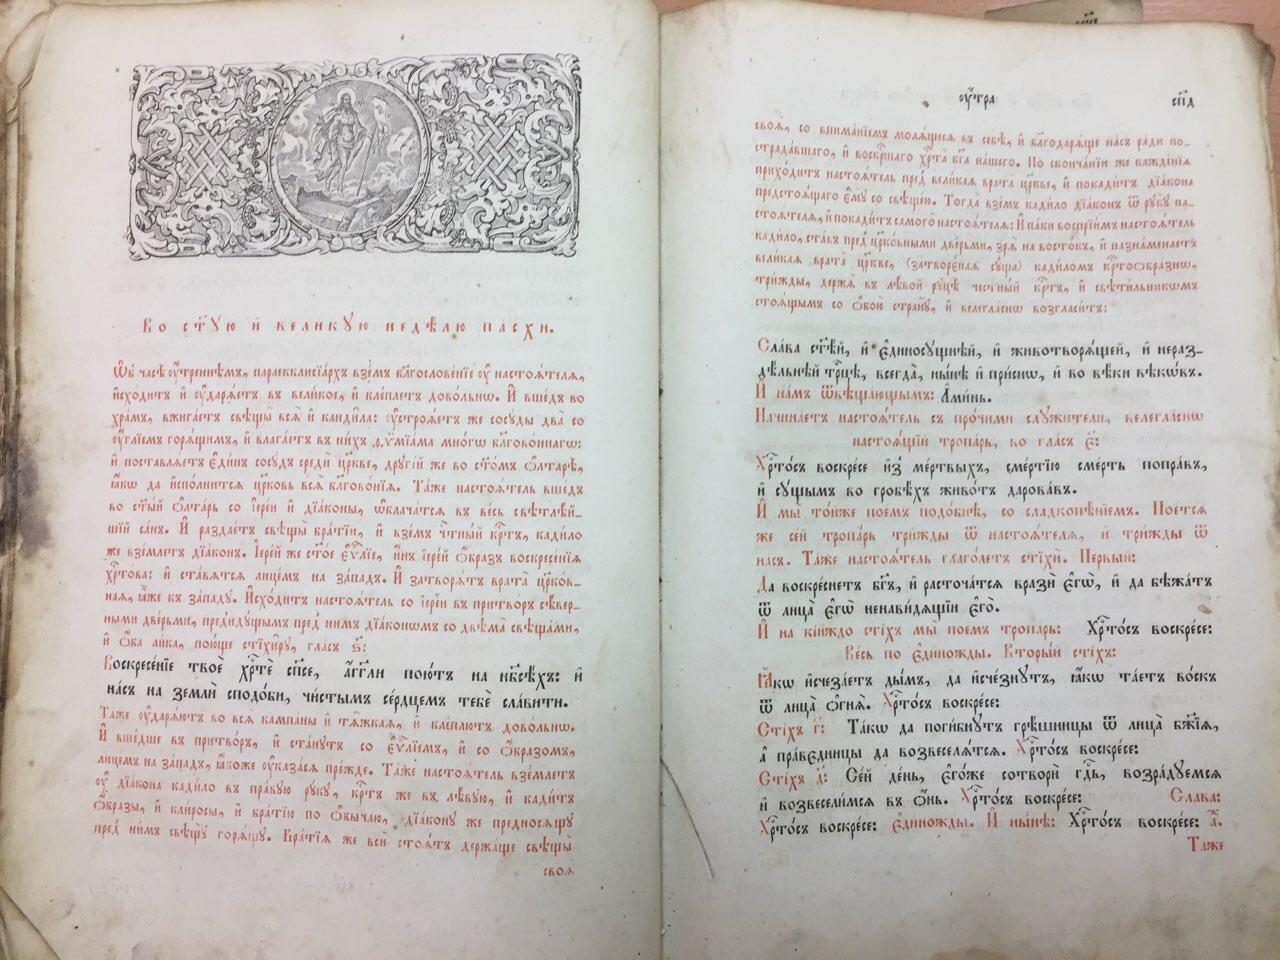 Во ст҃ꙋ́ю и҆ вели́кꙋю недѣ́лю па́схи.
Ѡ҆б̾ часѣ̀ ᲂу҆́треннемъ, параекклисїа́рхъ взе́мъ бл҃гослове́нїе ᲂу҆ настоѧ́телѧ,
и҆схо́дитъ и҆ ᲂу҆дарѧ́етъ въ вели́кое, и҆ кле́плетъ дово́льнѡ. И҆ вше́дъ во
хра́мъ, вжига́етъ свѣщы̀ всѧ҄ и҆ канди́ла: ᲂу҆строѧ́етъ же сосꙋ́ды два̀ со
ᲂу҆́глїемъ горѧ́щимъ, и҆ влага́етъ въ ни́хъ ѳѷмїа́ма мно́гѡ бл҃гово́ннагѡ:
и҆ поставлѧ́етъ є҆ди́нъ сосꙋ́дъ средѝ цр҃кве, дрꙋгі́й же во ст҃о́мъ ѻ҆лтарѣ̀,
ꙗ҆́кѡ да и҆спо́лнитсѧ цр҃ковь всѧ̀ бл҃гово́нїѧ. Та́же настоѧ́тель вше́дъ
во ст҃ы́й ѻ҆лта́рь со і҆ерє́и и҆ дїа́коны, ѡ҆блача́тсѧ въ ве́сь свѣтлѣ́й-
шїй са́нъ. И҆ раздае́тъ свѣщы̀ бра́тїи, и҆ взе́мъ чⷭ҇тны́й крⷭ҇тъ, кади́ло
же взе́млетъ дїа́конъ. І҆ере́й же ст҃о́е є҆ѵⷢ҇лїе, и҆́нъ і҆ере́й ѻ҆́бразъ воскресе́нїѧ
хрⷭ҇то́ва: и҆ ста́вѧтсѧ лице́мъ на за́падъ. И҆ затворѧ́тъ врата̀ цр҃кѡ́в-
наѧ, ꙗ҆́же къ за́падꙋ. И҆схо́дитъ настоѧ́тель со і҆ерє́и въ притво́ръ сѣ́вер-
ными две́рьми, предидꙋ́щымъ пред̾ ни́мъ дїа́конѡмъ со двѣма̀ свѣща́ми,
и҆ ѻ҆́ба ли́ка, пою́ще стїхи́рꙋ, гла́съ ѕ҃:
Воскресе́нїе твоѐ хрⷭ҇тѐ сп҃се, а҆́гг҃ли пою́тъ на нб҃сѣ́хъ: и҆
на́съ на землѝ сподо́би, чи́стымъ се́рдцемъ тебѐ сла́вити.
Та́же ᲂу҆дарѧ́ютъ во всѧ҄ кампа́ны и҆ тѧ́жкаѧ, и҆ кле́плютъ дово́льнѡ.
И҆ вше́дше въ притво́ръ, и҆ ста́нꙋтъ со є҆ѵⷢ҇лїемъ, и҆ со ѻ҆́бразомъ,
лице́мъ на за́падъ, ꙗ҆́коже ᲂу҆каза́сѧ пре́жде. Та́же настоѧ́тель взе́млетъ
ᲂу҆ дїа́кона кади́ло въ пра́вꙋю рꙋ́кꙋ, крⷭ҇тъ же въ лѣ́вꙋю, и҆ кади́тъ
ѻ҆́бразы, и҆ кли́росы, и҆ бра́тїю по ѻ҆бы́чаю, дїа́конꙋ же предносѧ́щꙋ
пред̾ ни́мъ свѣщꙋ̀ горѧ́щꙋ. Бра́тїѧ же всѝ стоѧ́тъ держа́ще свѣщы̀
своѧ̑
ᲂу҆́тра
сп҃д
своѧ̑, со внима́нїемъ молѧ́щесѧ въ себѣ̀, и҆ бл҃годарѧ́ще на́съ ра́ди по-
страда́вшаго, и҆ воскр҃шаго хрⷭ҇та̀ бг҃а на́шего. По сконча́нїи же кажде́нїѧ
прихо́дитъ настоѧ́тель пред̾ вели̑каѧ врата̀ цр҃кве, и҆ покади́тъ дїа́кона
предстоѧ́щаго є҆мꙋ̀ со свѣще́ю. Тогда̀ взе́мъ кади́ло дїа́конъ ѿ рꙋкꙋ̀ на-
стоѧ́телѧ, и҆ покади́тъ самого̀ настоѧ́телѧ: И҆ па́ки воспрїи́мъ настоѧ́тель
кади́ло, ста́въ пред̾ цр҃ко́вными две́рьми, зрѧ̀ на восто́къ, и҆ назна́менаетъ
вели̑каѧ врата̀ цр҃кве, (затворе́наѧ сꙋ́ща) кади́ломъ крⷭ҇тоѻбра́знѡ,
три́жды, держѧ̀ въ лѣ́вой рꙋцѣ̀ че́стный крⷭ҇тъ, и҆ свѣти́льникѡмъ
стоѧ́щымъ со ѻ҆бою̀ странꙋ̀, и҆ велегла́снѡ возгласи́тъ:
Сла́ва ст҃ѣ́й, и҆ є҆диносꙋ́щнѣй, и҆ животворѧ́щей, и҆ нераз-
дѣ́льнѣй трⷪ҇цѣ, всегда̀, ны́нѣ и҆ при́снѡ, и҆ во вѣ́ки вѣкѡ́въ.
И҆ на́мъ ѿвѣща́ющымъ: А҆ми́нь.
Начина́етъ настоѧ́тель съ про́чими слꙋжи́тели, велегла́снѡ
настоѧ́щїй тропа́рь, во гла́съ є҃:
Хрⷭ҇то́съ воскре́се и҆з̾ ме́ртвыхъ, сме́ртїю сме́рть попра́въ,
и҆ сꙋ́щымъ во гробѣ́хъ живо́тъ дарова́въ.
И҆ мы̀ то́йже пое́мъ подо́бнѣ, со сладкопѣ́нїемъ. Пое́тсѧ
же се́й тропа́рь три́жды ѿ настоѧ́телѧ, и҆ три́жды ѿ
на́съ. Та́же настоѧ́тель глаго́летъ стїхѝ. Пе́рвый:
Да воскре́снетъ бг҃ъ, и҆ расточа́тсѧ вразѝ є҆гѡ̀, и҆ да бѣжа́тъ
ѿ лица̀ є҆гѡ̀ ненави́дѧщїи є҆го̀.
И҆ на кі́йждо сті́хъ мы̀ пое́мъ тропа́рь: Хрⷭ҇то́съ воскре́се:
Ве́сь по є҆ди́ножды. Вторы́й сті́хъ:
Ꙗ҆́кѡ и҆счеза́етъ ды́мъ, да и҆сче́знꙋтъ, ꙗ҆́кѡ та́етъ во́скъ
ѿ лица̀ ѻ҆гнѧ̀. Хрⷭ҇то́съ воскре́се:
Сті́хъ г҃: Та́кѡ да поги́бнꙋтъ грѣ̑шницы ѿ лица̀ бж҃їѧ,
а҆ прⷣвницы да возвеселѧ́тсѧ. Хрⷭ҇то́съ воскре́се:
Сті́хъ д҃: Се́й де́нь, є҆го́же сотворѝ гдⷭ҇ь, возра́дꙋемсѧ
и҆ возвесели́мсѧ въ ѻ҆́нь. Хрⷭ҇то́съ воскре́се: Сла́ва:
Хрⷭ҇то́съ воскре́се: є҆ди́ножды. И҆ ны́нѣ: Хрⷭ҇то́съ воскре́се: а҃.
Та́же